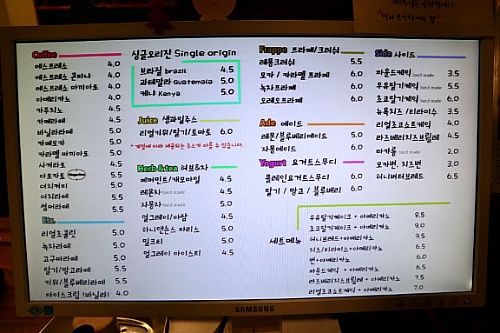 Coffee
에스프레소 4.0
에스프레소 콘파나 4.0
에스프레소 마끼아또 4.0
아메리카노 4.0
카푸치노 4.5
카페라떼 4.5
바닐라라떼 5.0
카페모카 5.0
카라멜 마끼아또 5.0
사케라또 4.5
아포가토 5.5
더치커피 5.0
더치라떼 5.5
썸머라떼 5.5
Etc.
리얼초콜릿 5.0
녹차라떼 5.0
고구마라떼 5.0
딸기/망고라떼 5.5
키위/블루베리라떼 5.5
아이스크림 (바닐라) 4.0
싱글오리진 Single origin
브라질 brazil 4.5
과테말라 Guatemala 5.0
케냐 Kenya 5.0
Juice 생과일쥬스
리얼키위/딸기/토마토 6.0
Herb & tea 허브&차
페퍼민트/캐모마일 4.5
레몬차 hand made 4.5
자몽차 hand made 5.0
얼그레이/아쌈 4.5
아니엔순 스파이스
밀크티 5.0
얼그레이 아이스티 4.5
Frappe 프라페/크러쉬
레몬크러쉬 5.5
모카 / 카라멜 프라페 6.0
녹차프라페 6.0
오레오프라페 6.0
Ade 에이드
레몬/블루베리에이드 5.5
자몽에이드 6.0
Yogurt 요거트스무디
플레인요거트스무디 6.0
딸기 / 망고 / 블루베리 6.0
Side 사이드
파운드케익 hand made 3.5
우유딸기케익 hand made 5.5
초코딸기케익 hand made 6.0
뉴욕치즈 /티라미수 3.5
리얼초코쇼트케익 4.0
라즈베리치즈브륄레 4.5
마카롱 hand made 2.0
모카번, 치즈번 3.0
허니버터브레드 5.5
세트메뉴
우유딸기케이크 + 아메리카노 8.5
초코딸기케이크 + 아메리카노 9.0
허니브레드+아메리카노 9.5
치즈/티라미수+아메리카노
번+아메리카노 6.0
파운드케익 + 아메리카노
라즈베리치즈브륄레+아메리카노
리얼초코쇼트케익 + 아메리카노 7.0
SAMSUNG